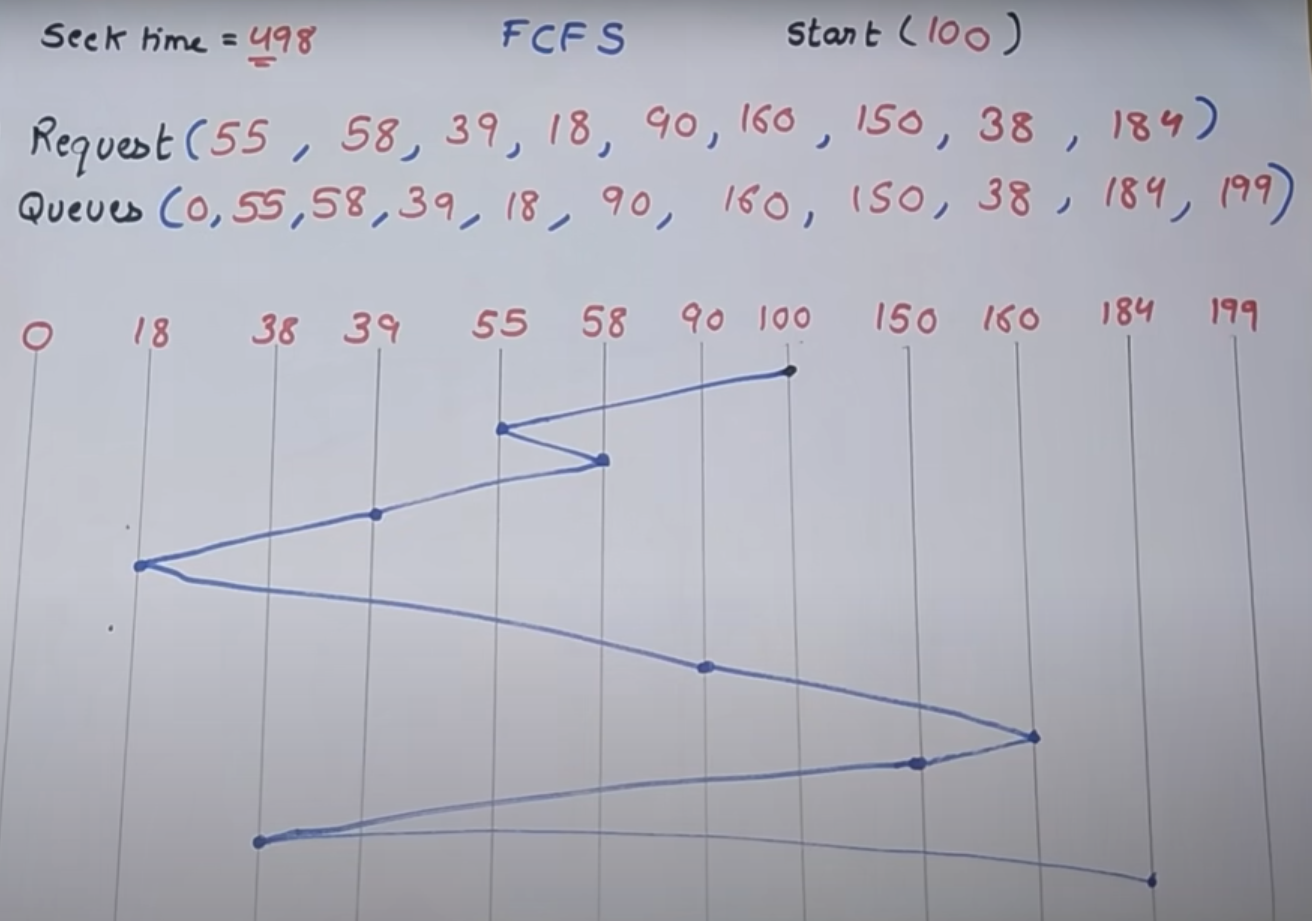 Seek time = 498 FCFS Start (100)
Request (55, 58, 39, 18, 90, 160, 150, 38, 184)
Queues (0, 55, 58, 39, 18, 90, 160, 150, 38, 184, 199)
0 18 38 39 55 58 90 100 150 160 184 199